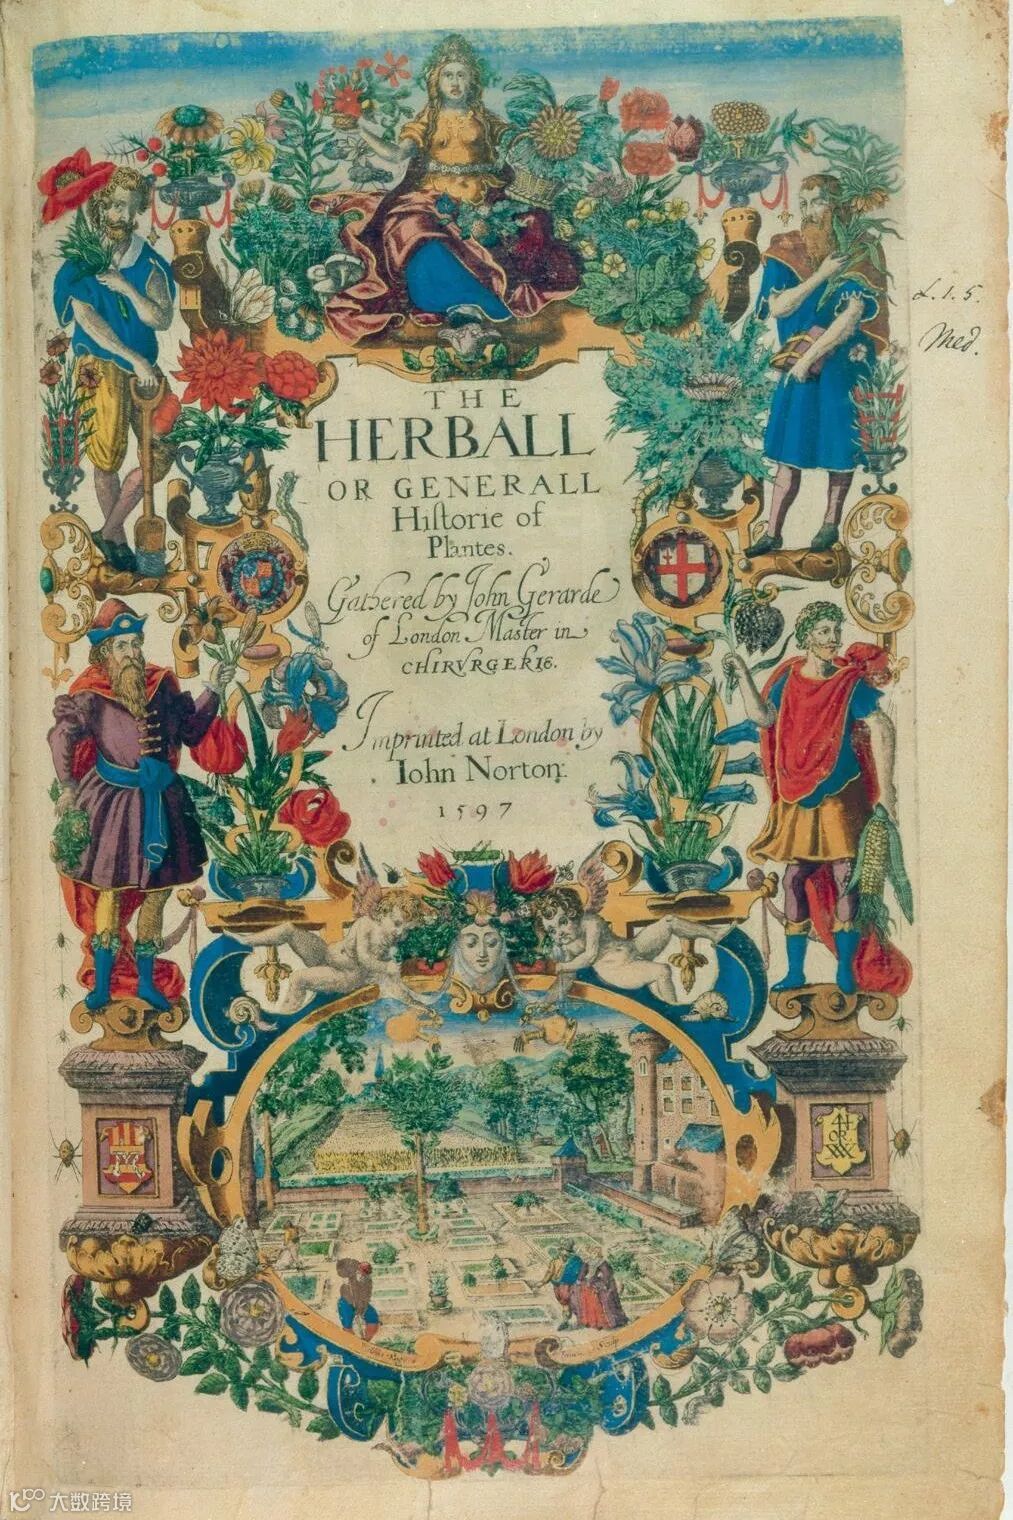 L. 1. 5.
Med.
THE
HERBALL
OR GENERALL
Historie of
Plantes.
Gathered by John Gerarde
of London Master in
CHIRVRGERIE.
Imprinted at London by
Iohn Norton.
1597
大数跨境